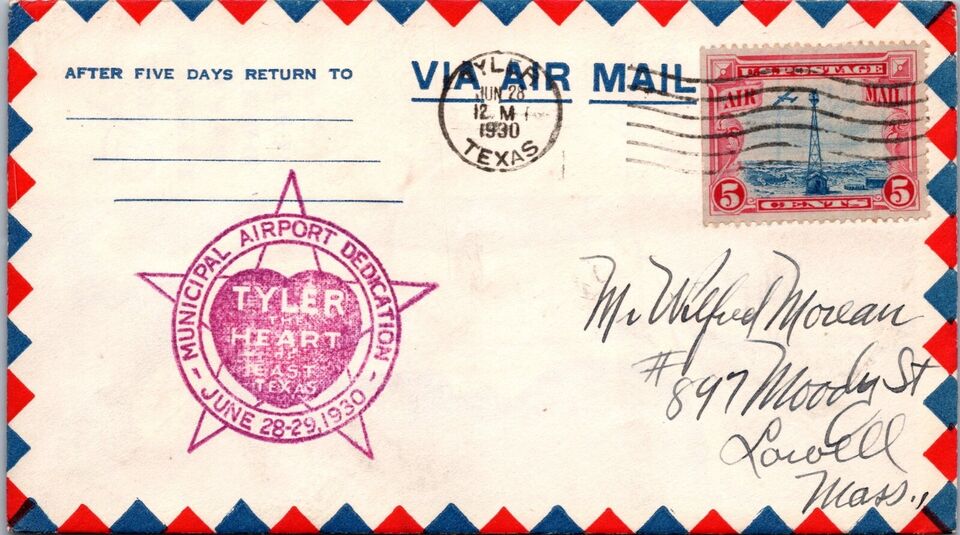 AFTER FIVE DAYS RETURN TO
VIA AIR MAIL
TYLER
JUN 28
12 M
1930
TEXAS
U.S. POSTAGE
AIR MAIL
5 5
CENTS
MUNICIPAL AIRPORT DEDICATION
TYLER
THE
HEART
OF
EAST
TEXAS
- JUNE 28-29, 1930 -
Mr Wilfred Moreau
#897 Moody St
Lowell
Mass.,